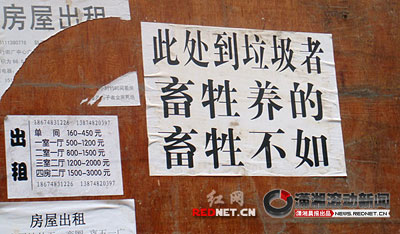 房屋出租
此处到垃圾者
畜牲养的
畜牲不如
出租
18674831226 13874820397
单间 160-450元
一室一厅 500-1000元
二室一厅 800-1500元
三室二厅 1200-2000元
四房二厅 1500-3000元
18674831226 13874820397
房屋出租
红网
REDNET.CN
潇湘滚动新闻
潇湘晨报出品 NEWS.REDNET.CN